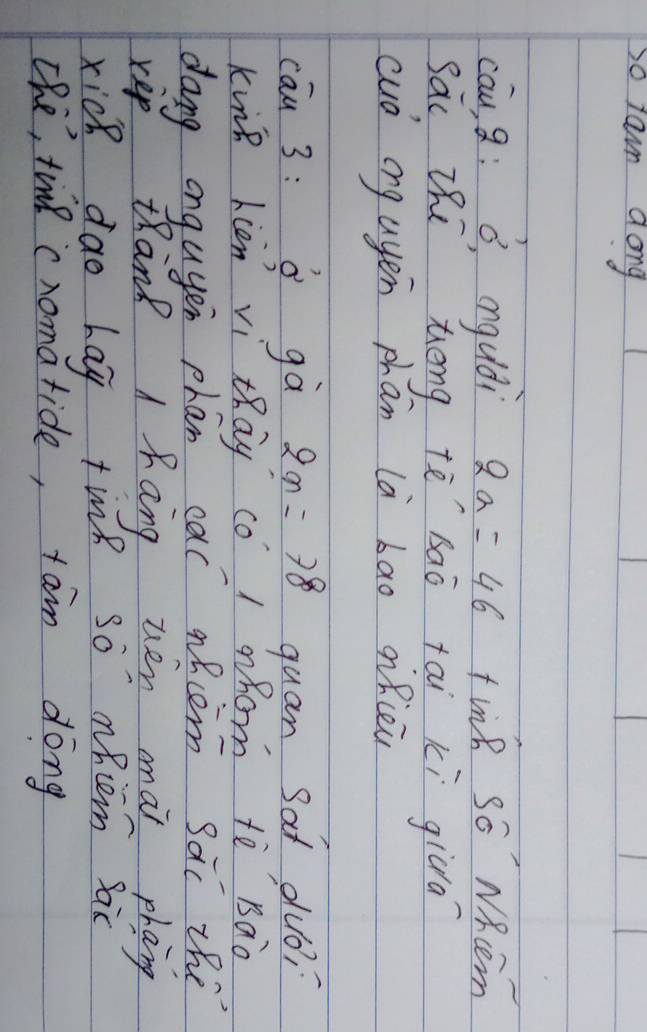 số tâm động
câu 2: ở người 2n = 46 tính số Nhiễm
sắc thể trong tế bào tại kì giữa
của nguyên phân là bao nhiêu
câu 3: ở gà 2n = 78 quan sát dưới
kính hiển vi thấy có 1 nhóm tế bào
đang nguyên phân các nhiễm sắc thể
xếp thành 1 hàng trên mặt phẳng
xích đạo hãy tính số nhiễm sắc
thể, tính cromatide, tâm động